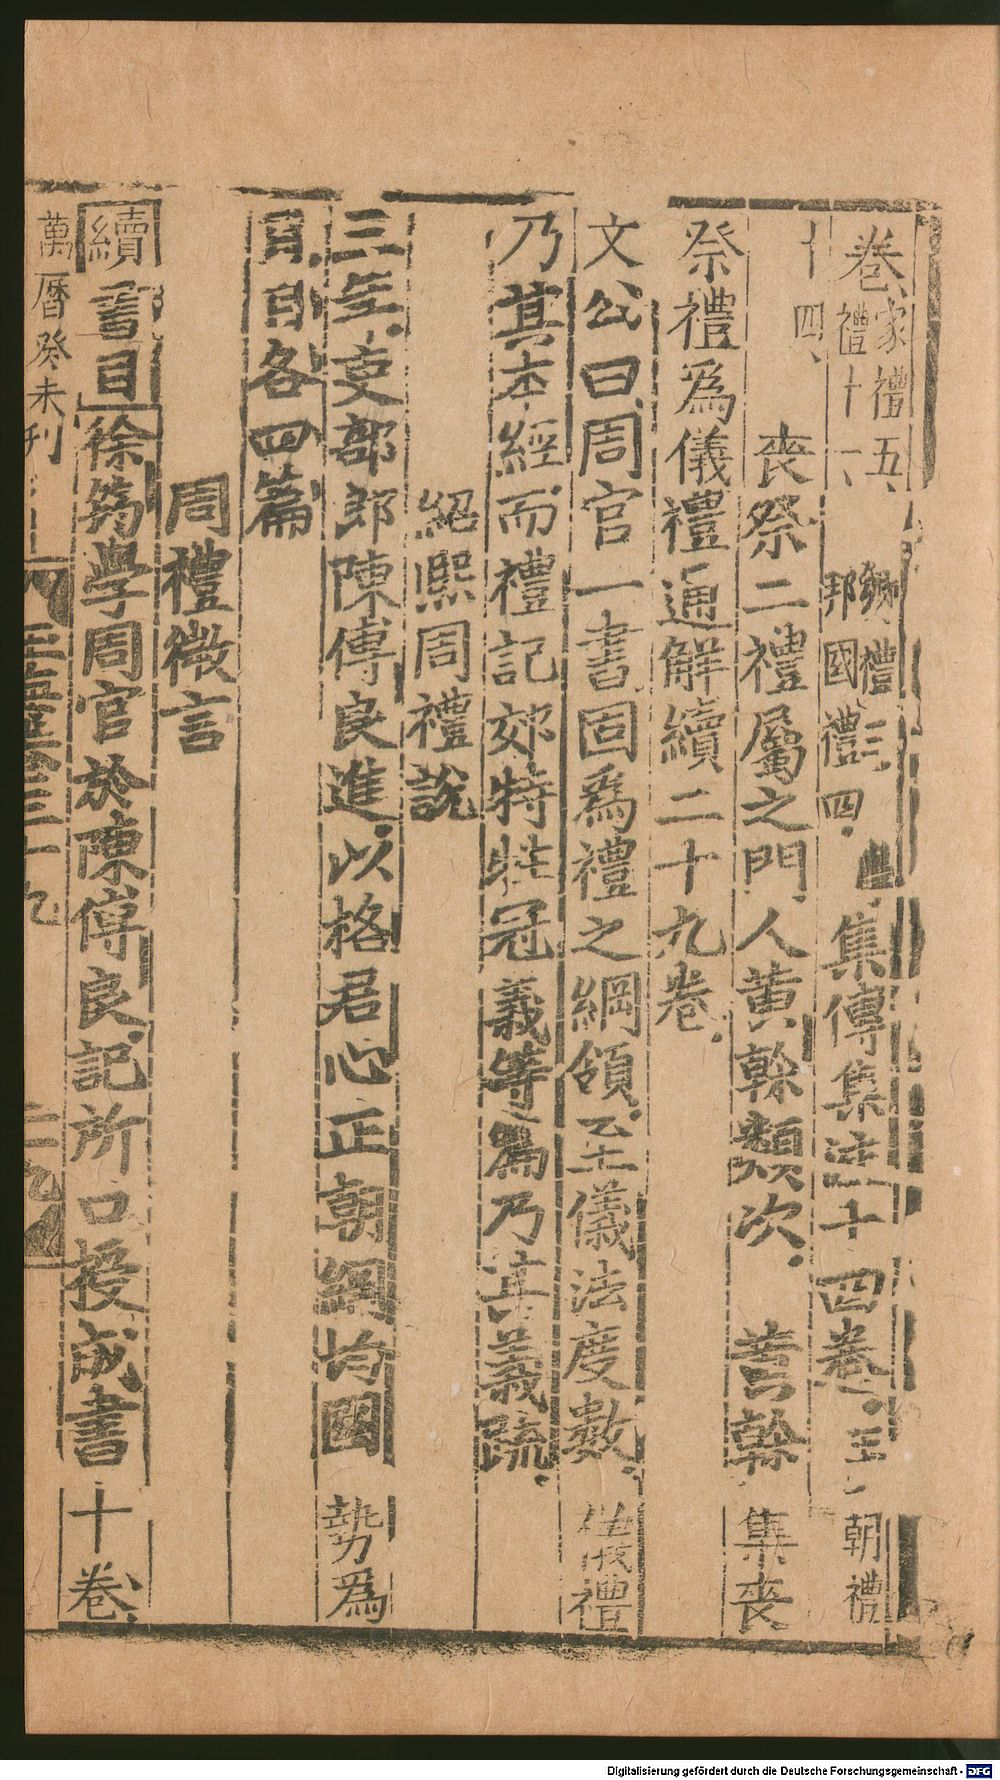 卷家禮五、鄉禮三、集傳集注十四卷。王朝禮
禮十一、邦國禮四、
十四、喪祭二禮屬之門人黃榦類次。黃榦集喪
祭禮爲儀禮通解續二十九卷。
文公曰周官一書固爲禮之綱領至儀法度數。儀禮
乃其本經而禮記郊特牲冠義等篇乃其義疏。
紹熙周禮說
三年吏部郎陳傅良進以格君心正朝綱均國勢爲
目目各四篇
周禮微言
續書目徐筠學周官於陳傅良記所口授成書十卷
萬曆癸未刊
玉海卷三十九